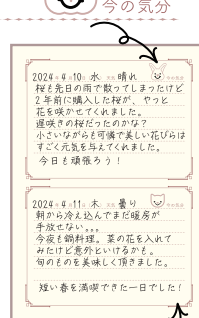 今の気分
2024.4.10 水 晴れ
桜も先日の雨で散ってしまったけど
2年前に購入した桜が、やっと
花を咲かせてくれました。
遅咲きの桜だったのかな?
小さいながらも可憐で美しい花びらは
すごく元気を与えてくれました。
今日も頑張ろう!
2024.4.11 木 曇り
朝から冷え込んでまだ暖房が
手放せない。。。
今夜も鍋料理。菜の花を入れて
みたけど意外といけるかも。
旬のものを美味しく頂きました。
短い春を満喫できた一日でした!